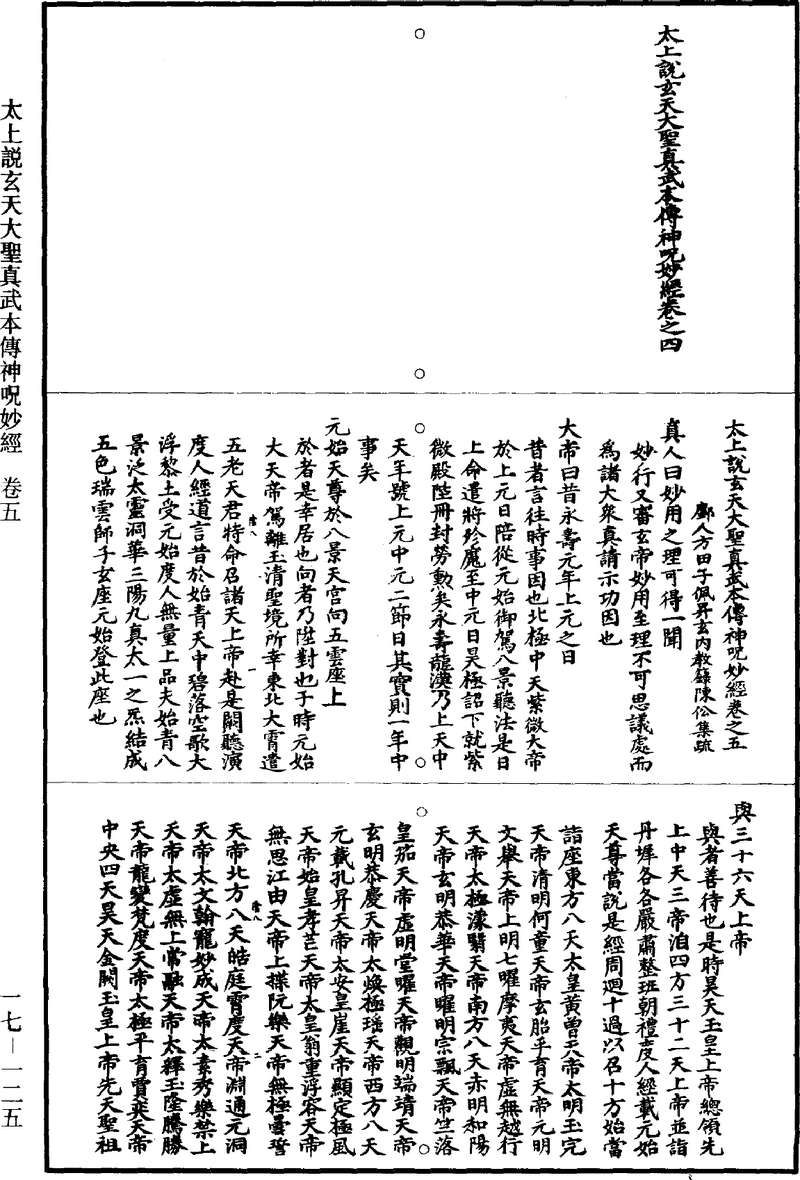 太上說玄天大聖真武本傳神呪妙經卷之四
太上說玄天大聖真武本傳神呪妙經卷之五
鄱人方田子佩昇玄內教籙陳伀集疏
真人曰妙用之理可得一聞
妙行又審玄帝妙用至理不可思議處而
為諸大衆真請示功因也
大帝曰昔永壽元年上元之日
昔者言往時事因也北極中天紫微大帝
於上元日陪從元始御駕八景聽法是日
上命遣將殄魔至中元日昊極詔下就紫
微殿陞冊封勞勲矣永壽龍漢乃上天中
天年號上元中元二節日其實則一年中
事矣
元始天尊於八景天宫向五雲座上
於者是幸居也向者乃陞對也于時元始
大天帝駕離玉清聖境所幸東北大霄遣
五老天君特命召諸天上帝赴是闕聽演
度人經道言昔於始青天中碧落空歌大
浮黎土受元始度人無量上品夫始青八
景泛太靈洞華三陽九真太一之炁結成
五色瑞雲師子玄座元始登此座也
與三十六天上帝
與者善待也是時昊天玉皇上帝總領先
上中天三帝洎四方三十二天上帝並詣
丹墀各各嚴肅整班朝禮度人經載元始
天尊當說是經周迴十過以召十方始當
詣座東方八天太皇黄曾天帝太明玉完
天帝清明何童天帝玄胎平育天帝元明
文舉天帝上明七曜摩夷天帝虛無越行
天帝太極濛翳天帝南方八天赤明和陽
天帝玄明恭華天帝曜明宗飄天帝竺落
皇笳天帝虛明堂曜天帝觀明端靖天帝
玄明恭慶天帝太煥極瑶天帝西方八天
元載孔昇天帝太安皇崖天帝顯定極風
天帝始皇孝芒天帝太皇翁重浮容天帝
無思江由天帝上揲阮樂天帝無極曇誓
天帝北方八天皓庭霄度天帝淵通元洞
天帝太文翰寵妙成天帝太素秀樂禁上
天帝太虛無上常融天帝太釋玉隆騰勝
天帝龍變梵度天帝太極平育賈奕天帝
中央四天昊天金闕玉皇上帝先天聖祖
太上說玄天大聖真武本傳神呪妙經 卷五
一七－一二五